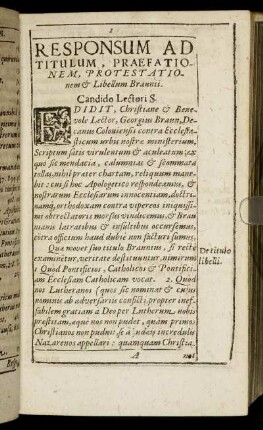 1
RESPONSUM AD
TITULUM, PRAEFATIO-
NEM, PROTESTATIO-
nem & Libellum Braunii.
Candido Lectori S.
EDIDIT, Christiane & Bene-
vole Lector, Georgius Braun, De-
canus Coloniensi contra Ecclesia-
sticum urbis nostræ ministerium,
Scriptum satis virulentum & aculeatum: ex
quo si mendacia, calumnias & scommata
tollas, nihil præter chartam, reliquum mane-
bit: cui si hoc Apologetico respondeamus, &
nostrarum Ecclesiarum innocentiam, doctri-
nam, orthodoxam contra vipereos iniquissi-
mi obtrectatoris morsus vindicemus, & Brau-
nianis latratibus & insultibus occursemus,
extra officium haud dubie non facturi sumus.
Qua movet sue titulo Braunius, si recte
examinetur, veritate destituuntur, nimirum
1 Quod Pontificios, Catholicos & Pontifici-
am Ecclesiam Catholicam vocat. 2. Quod
nos Lutheranos (quos sic nominat &
nomine ab adversariis conficti, propter inef-
fabilem gratiam a Deo per Lutherum, nobis
præstitam, æque nos non pudet, quàm primos
Christianos non puduit se à Judæis incredulis
Nazarenos appellari: quamquam Christia-
De titulo
libelli.
A